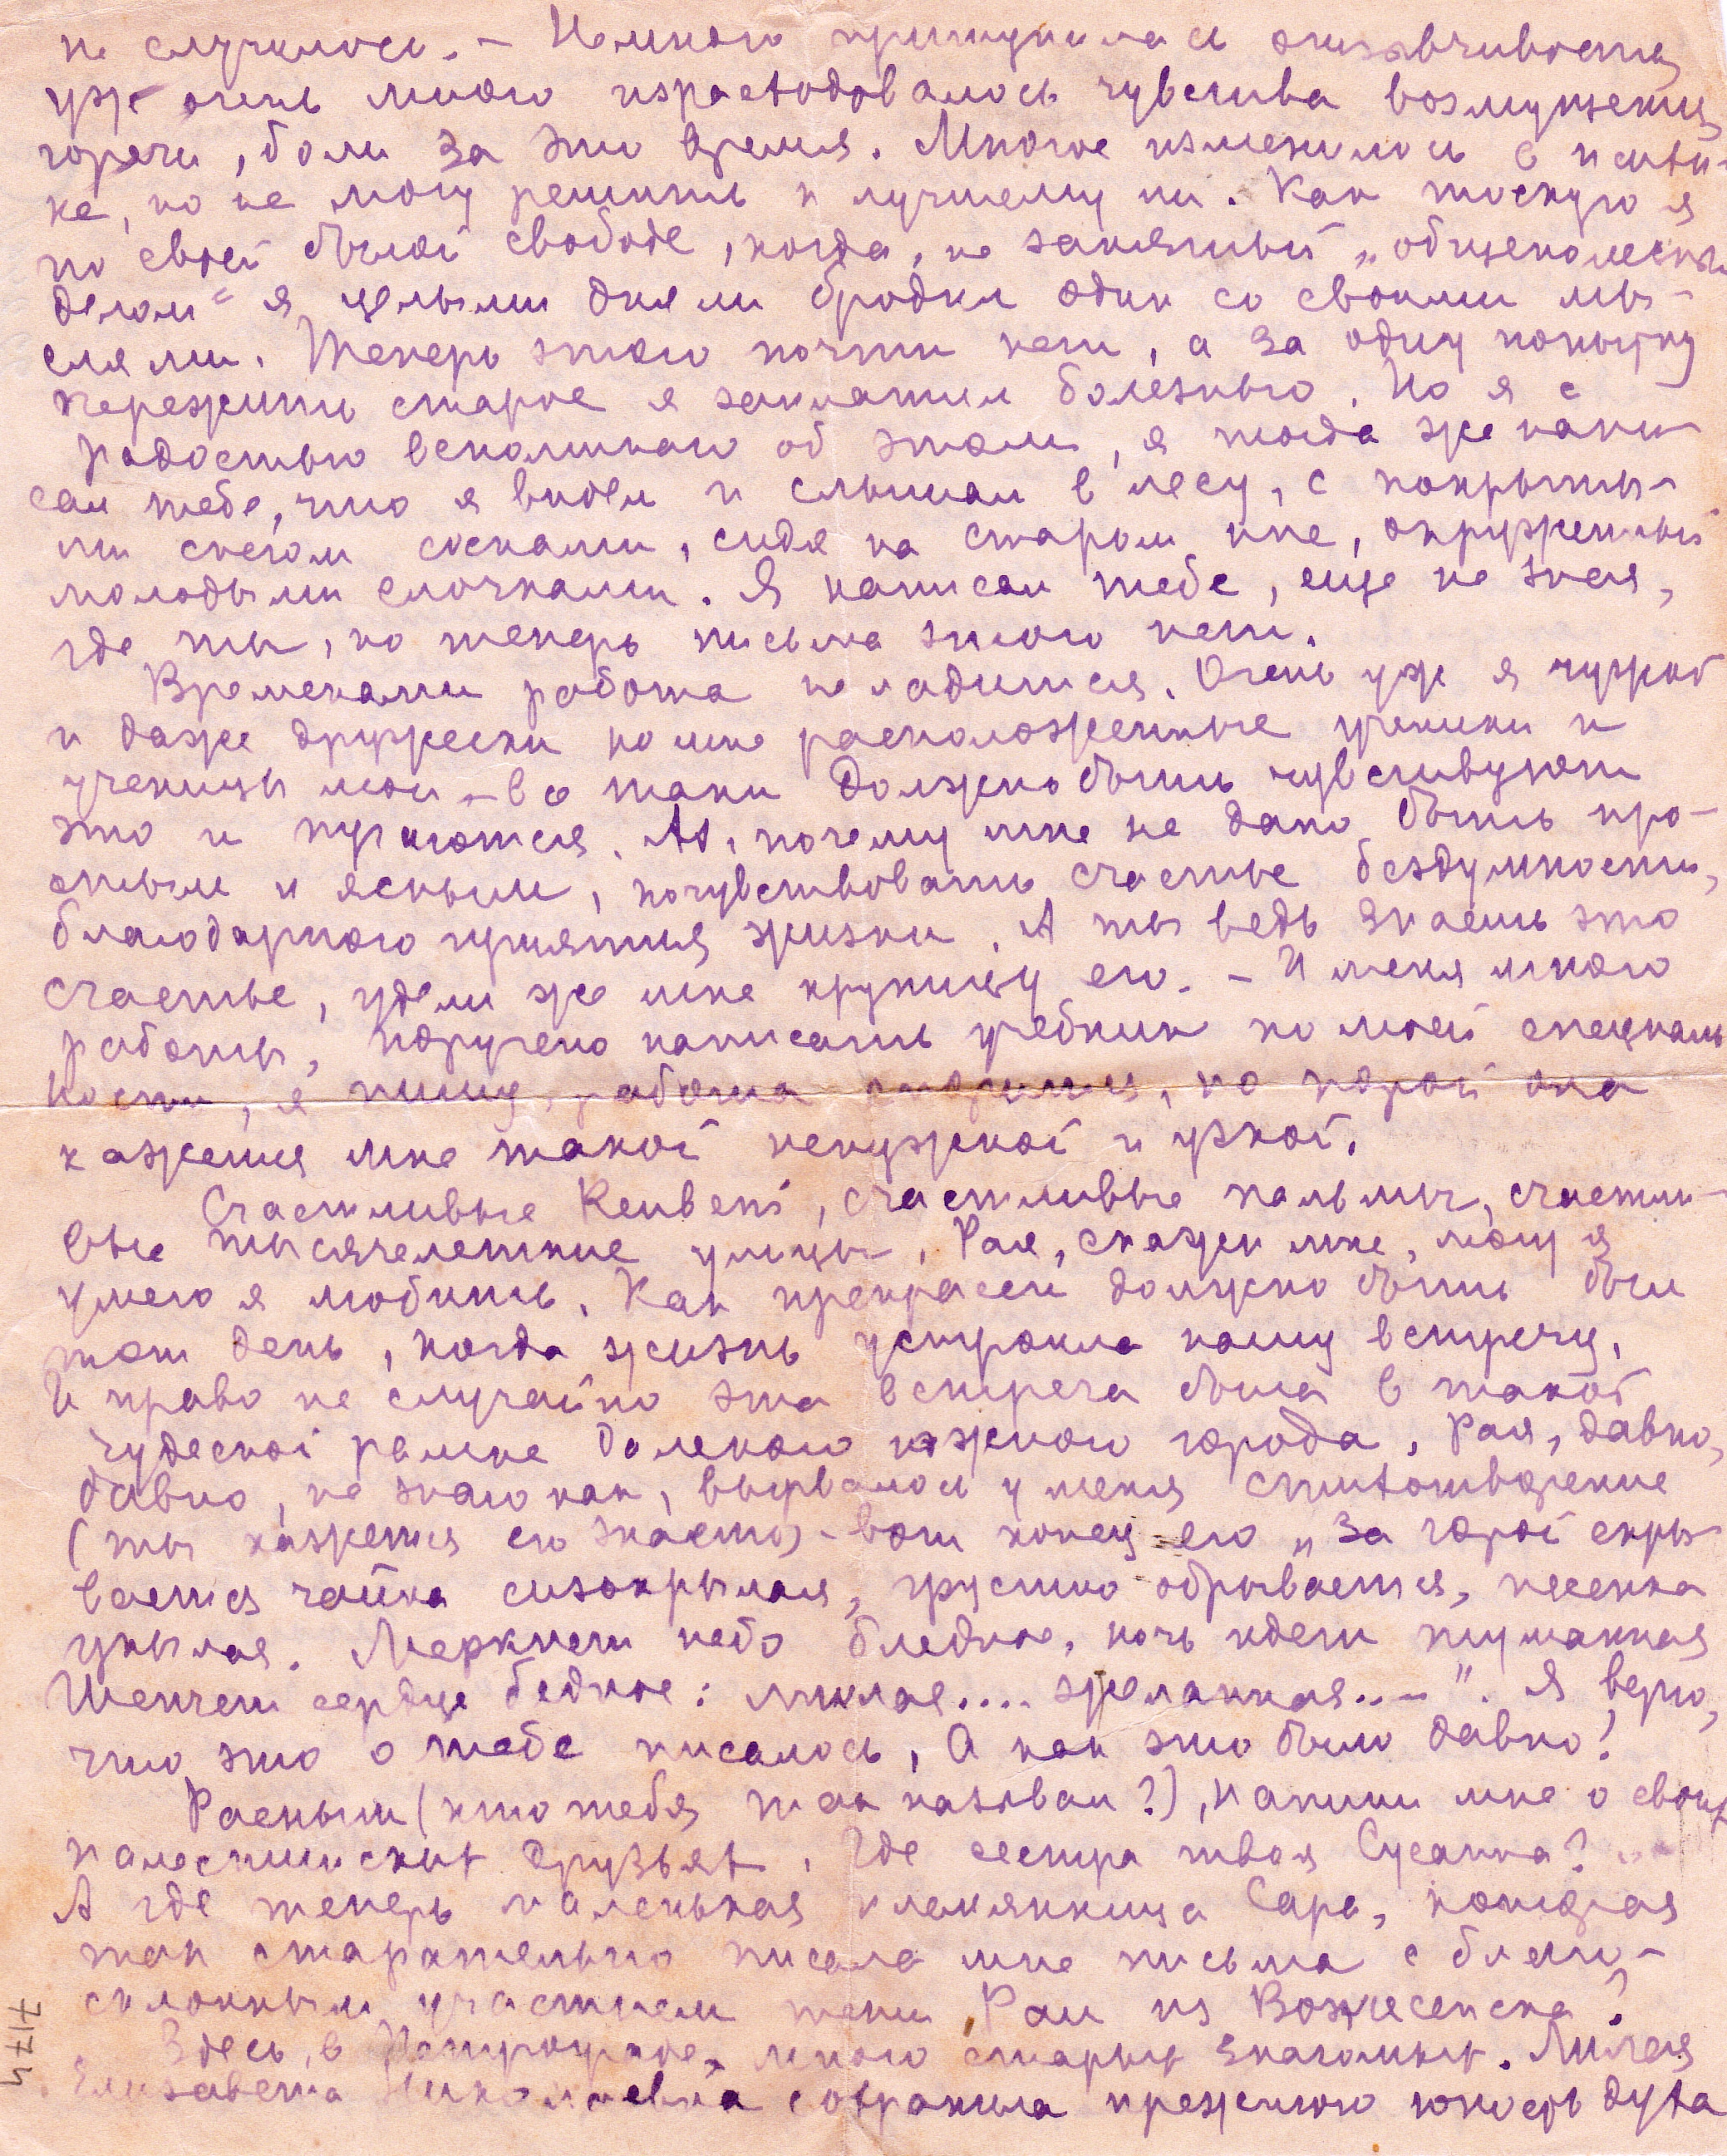 не случилось. – Немного притупилась отзывчивость,
уж очень много израсходовалось чувства возмущения,
горечи, боли за это время. Многое изменилось в психи-
ке, но не могу решить к лучшему ли. Как тоскую я
по своей былой свободе, когда, не занятый „общеполезным
делом“ я целыми днями бродил один со своими мы-
слями. Теперь этого почти нет, а за одну попытку
пережить старое я заплатил болезнью. Но я с
радостью вспоминаю об этом, я тогда же напи-
сал тебе, что я видел и слышал в лесу, с покрыты-
ми снегом соснами, сидя на старом пне, окруженный
молодыми елочками. Я написал тебе, еще не зная,
где ты, но теперь письма этого нет.
Временами работа не ладится. Очень уж я чужой
и даже дружески ко мне расположенные ученики и
ученицы мои – все таки должно быть чувствуют
это и пугаются. Ах, почему мне не дано быть про-
стым и ясным, почувствовать счастье бездумности,
благодарного принятия жизни. А ты ведь знаешь это
счастье, удели же мне крупицу его. – У меня много
работы, поручено написать учебник по моей специаль
ности, я пишу, работа спорится, но порой она
кажется мне такой ненужной и узкой.
Счастливые Reubeni, счастливые пальмы, счастли-
вые тысячелетние улицы. Рая, скажи мне, могу я
умею я любить. Как прекрасен должно быть был
тот день, когда жизнь устроила нашу встречу.
И право не случайно эта встреча была в такой
чудесной рамке далекого южного города. Рая, давно,
давно, не знаю как, вырвалось у меня стихотворение
(ты кажется его знаешь) – вот конец его „За горой скры
вается чайка сизокрылая, грустно обрывается, песенка
унылая. Меркнет небо бледное, ночь идет туманная
Шепчет сердце бедное: милая.... желанная..–". Я верю,
что это о тебе писалось, А как это было давно!
Раеныш (кто тебя так называл?), напиши мне о своих
палестинских друзьях. Где сестра твоя Сусанна?
А где теперь маленькая племянница Сара, которая
так старательно писала мне письма с благо-
склонным участием тети Раи из Вознесенска?
Здесь, в Петрограде, много старых знакомых. Милая
Елизавета Николаевна сохранила прежнюю юность духа
7174